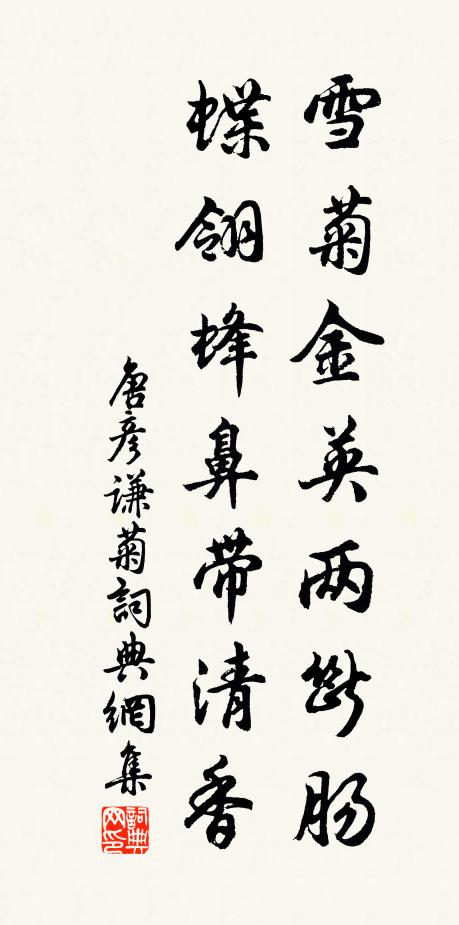 雪菊金英两断肠
蝶翎蜂鼻带清香
唐彦谦菊詞典網集
詞典网印